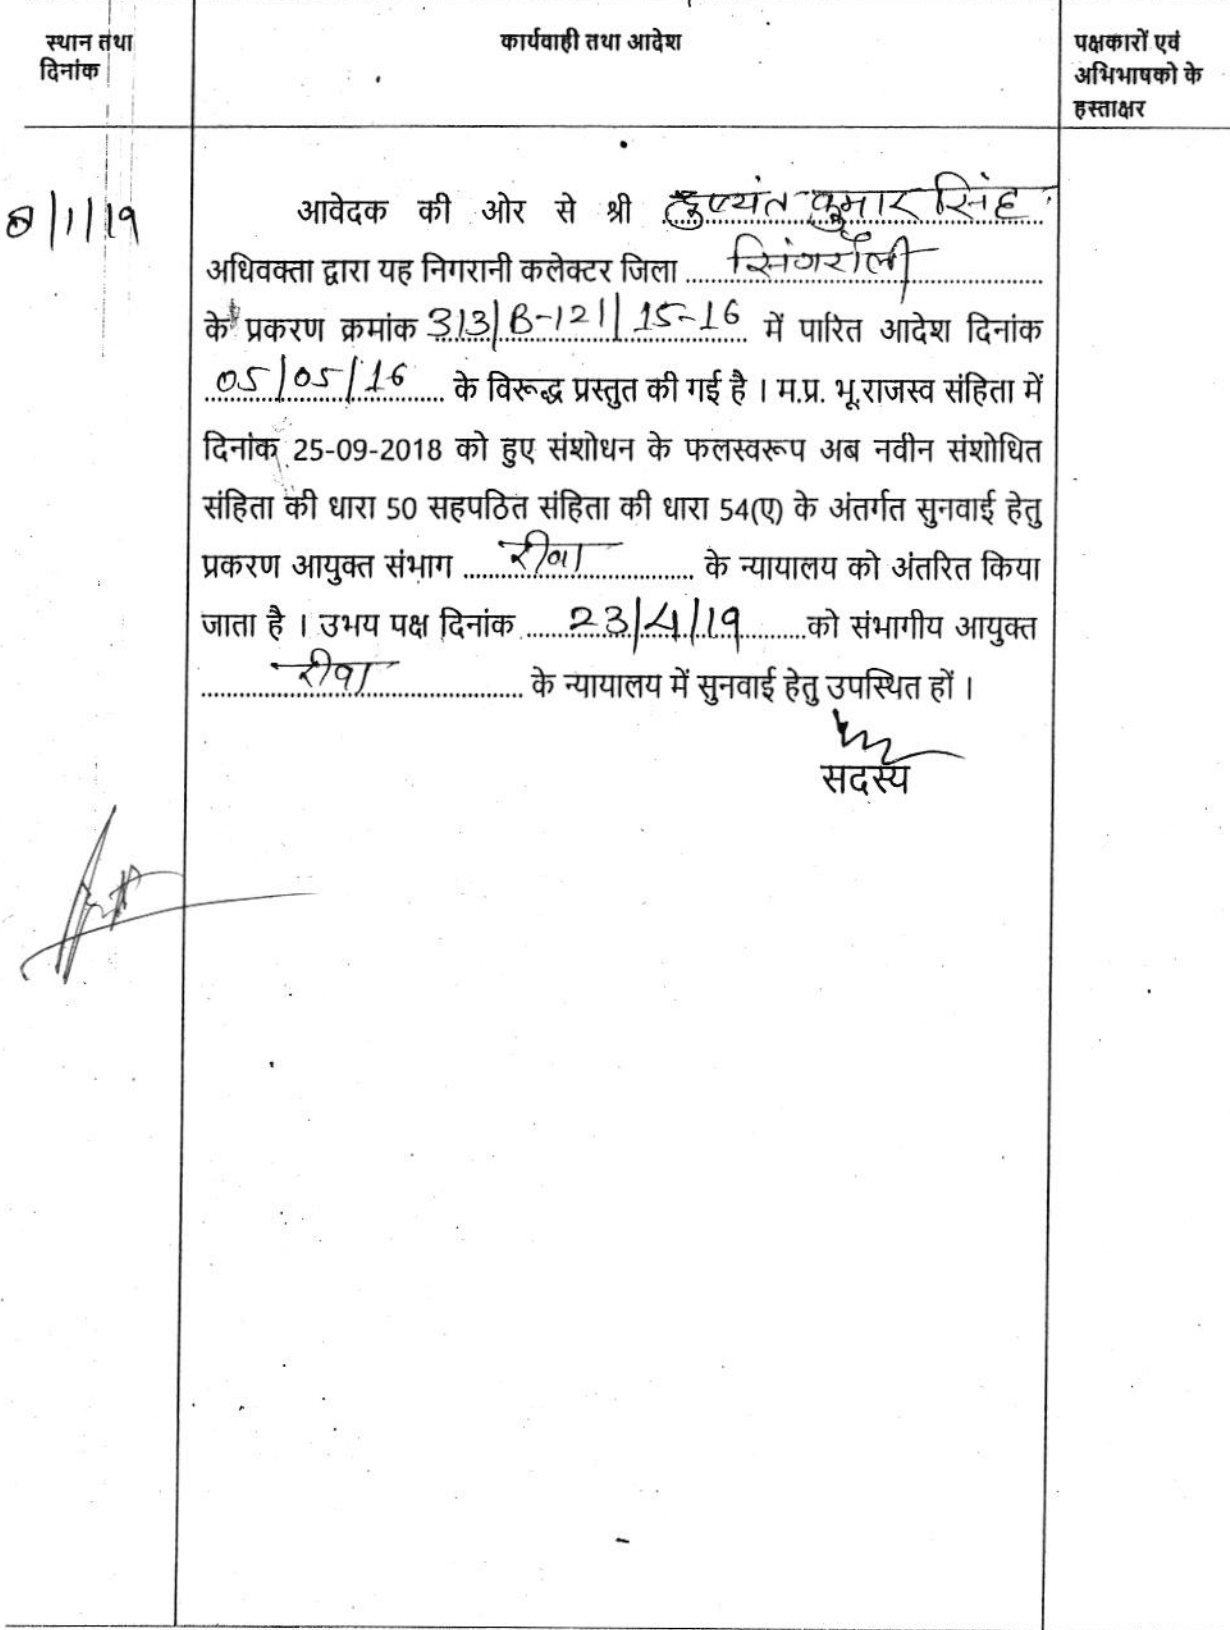 स्थान तथा
दिनांक
कार्यवाही तथा आदेश
पक्षकारों एवं
अभिभाषको के
हस्ताक्षर
/1/19
आवेदक की ओर से श्री दुष्यंत कुमार सिंह
अधिवक्ता द्वारा यह निगरानी कलेक्टर जिला सिंगरौली
के प्रकरण क्रमांक 313/B-121/15-16 में पारित आदेश दिनांक
05/05/16 के विरूद्ध प्रस्तुत की गई है । म.प्र. भू.राजस्व संहिता में
दिनांक 25-09-2018 को हुए संशोधन के फलस्वरूप अब नवीन संशोधित
संहिता की धारा 50 सहपठित संहिता की धारा 54(ए) के अंतर्गत सुनवाई हेतु
प्रकरण आयुक्त संभाग रीवा के न्यायालय को अंतरित किया
जाता है । उभय पक्ष दिनांक 23/4/19 को संभागीय आयुक्त
रीवा के न्यायालय में सुनवाई हेतु उपस्थित हों ।
सदस्य